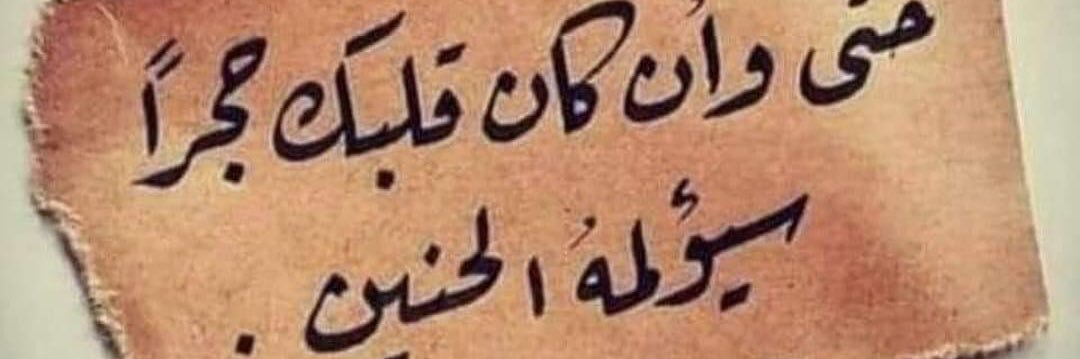 حتى وأن كان قلبك حجراً
سيؤلمهُ الحنين .